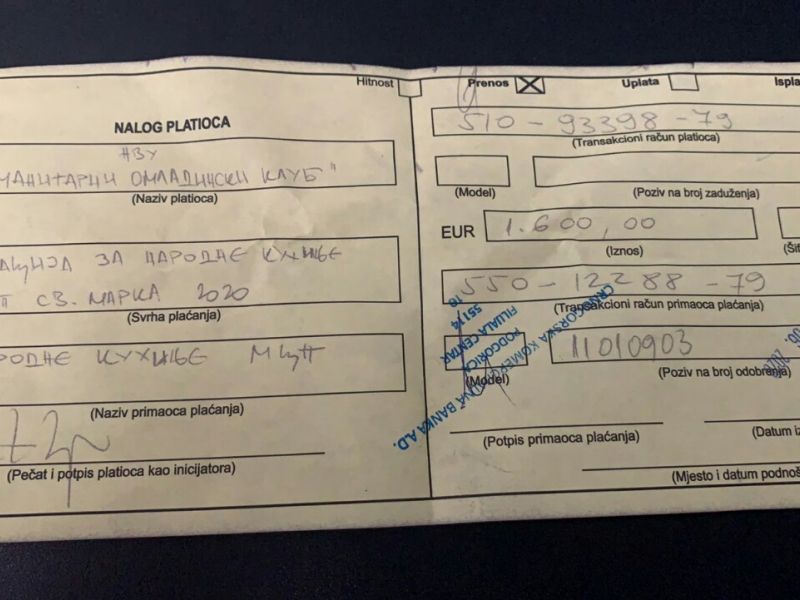 Hitnost
NALOG PLATIOCA
НВУ
МАНИТАРНИ ОМЛАДИНСКИ КЛУБ"
(Naziv platioca)
ЗА НАРОДНЕ КУХИЊЕ
СВ. МАРКА 2020
(Svrha plaćanja)
РОДНЕ КУХИЊЕ МЦП
(Naziv primaoca plaćanja)
(Pečat i potpis platioca kao inicijatora)
Prenos Uplata Ispla
510-93398-79
(Transakcioni račun platioca)
(Model) (Poziv na broj zaduženja)
EUR 1.600,00
(Iznos) (Šif
550-12288-79
(Transakcioni račun primaoca plaćanja)
11010903
(Model) (Poziv na broj odobrenja)
CRNOGORSKA KOMERCIJALNA BANKA A.D.
PODGORICA
FILIJALA CENTAR
551/4
16
(Potpis primaoca plaćanja) (Datum iz
(Mjesto i datum podnoš